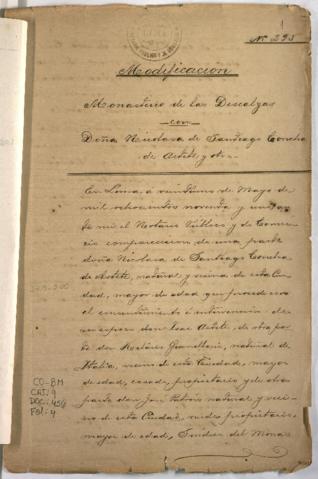 1
Nº 293
Modificacion
Monasterio de las Descalzas
con
Doña Nicolasa de Santiago Concha
de Astete y otro
En Lima, a veintiuno de Mayo de
mil ochocientos noventa y uno, an
te mi el Notario Público y de Comer
cio comparecieron de una parte
doña Nicolasa de Santiago Concha
de Astete, natural y vecina de esta Ciu
dad, mayor de edad, que procede con
el consentimiento é intervencion de
su esposo don José Astete, de otra par
te don natural de
Italia, vecino de esta Ciudad, mayor
de edad, casado, propietario y de otra
parte don natural y veci
no de esta Ciudad, propietario,
mayor de edad, Síndico del Monas
CO-BM
CAJ: 9
DOC: 456
Fol: 4